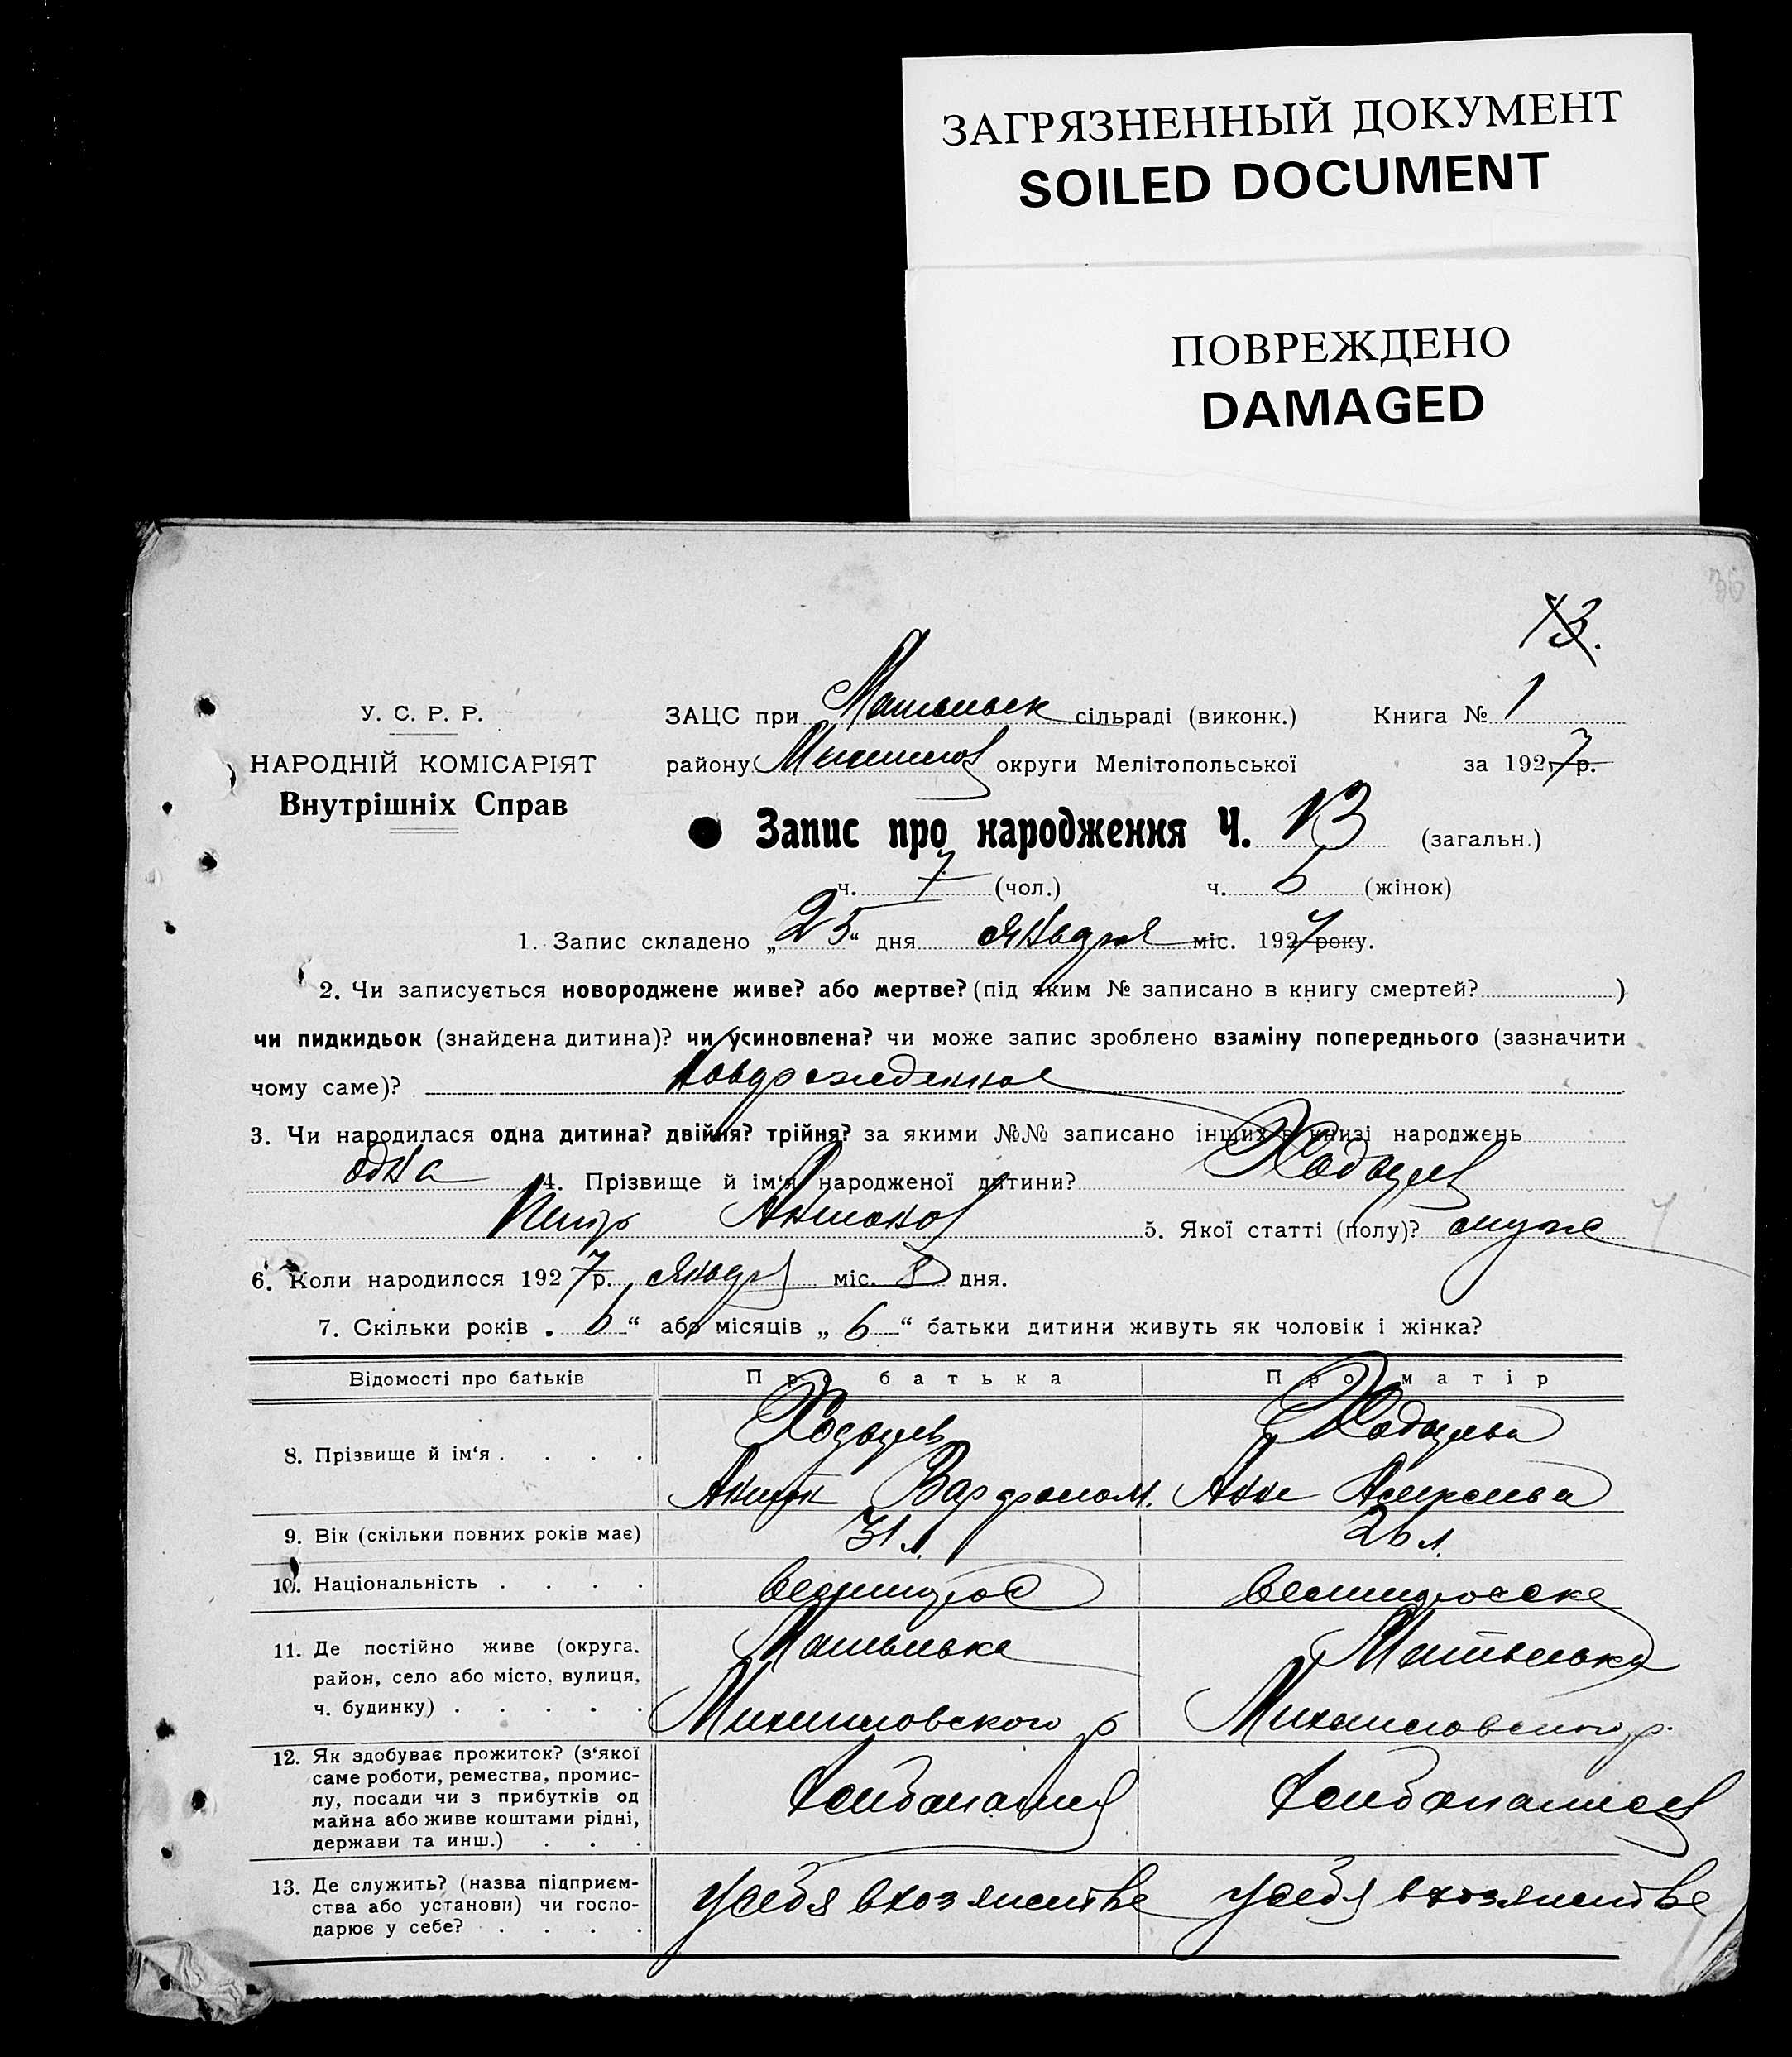 ЗАГРЯЗНЕННЫЙ ДОКУМЕНТ
SOILED DOCUMENT
ПОВРЕЖДЕНО
DAMAGED
36
13.
У. С. Р. Р.
НАРОДНІЙ КОМІСАРІЯТ
Внутрішніх Справ
ЗАЦС при сільраді (виконк.) Книга № 1
району Михайлов округи Мелітопольської за 1927 р.
Запис про народження Ч. 13 (загальн.)
ч. 7 (чол.) ч. 6 (жінок)
1. Запис складено „25“ дня января міс. 1927 року.
2. Чи записується новороджене живе? або мертве? (під яким № записано в книгу смертей? )
чи пидкидьок (знайдена дитина)? чи усиновлена? чи може запис зроблено взаміну попереднього (зазначити
чому саме)? новорожденное
3. Чи народилася одна дитина? двійня? трійня? за якими №№ записано інших в книзі народжень
одна 4. Прізвище й ім‘я народженої дитини?
Петр Антонов 5. Якої статті (полу)? муже
6. Коли народилося 1927 р. Января міс. 8 дня.
7. Скільки років „6“ або місяців „6“ батьки дитини живуть як чоловік і жінка?
Відомості про батьків Про батька Про матір
8. Прізвище й ім‘я . . . .
Антон Варфолом. Анна Алексеева
9. Вік (скільки повних років має) 31 л. 26 л.
10. Національність . . . . великорос великоросска
11. Де постійно живе (округа, Матвеевка Матвеевка
район, село або місто, вулиця,
ч. будинку) . . . . . Михайловского р Михайловского р.
12. Як здобуває прожиток? (з‘якої
саме роботи, ремества, промис-
лу, посади чи з прибутків од хлебопашец
майна або живе коштами рідні,
держави та инш.) . . .
13. Де служить? (назва підприєм-
ства або установи) чи госпо- у себя в хозяйстве у себя в хозяйстве
дарює у себе? . . . .